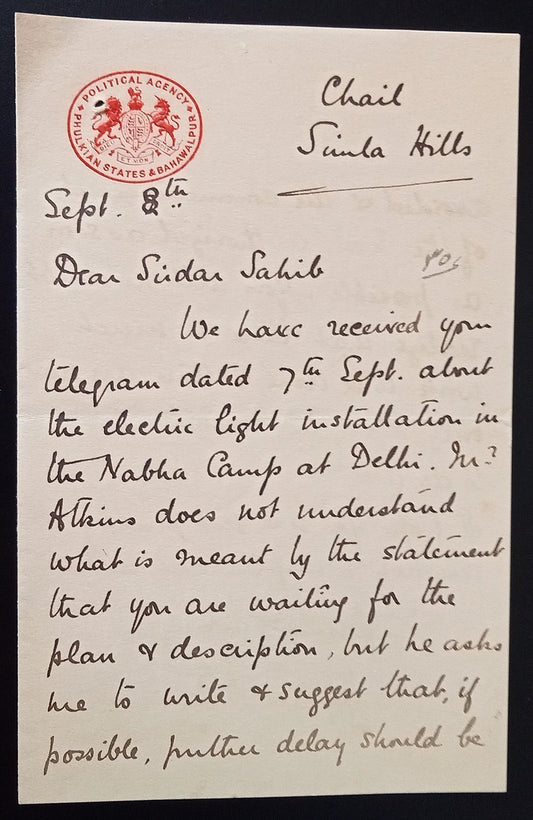 POLITICAL AGENCY
PHULKIAN STATES & BAHAWALPUR
Chail
Simla Hills
Sept. 8th
Dear Sirdar Sahib
We have received your
telegram dated 7th Sept. about
the electric light installation in
the Nabha Camp at Delhi. Mr
Atkins does not understand
what is meant by the statement
that you are waiting for the
plan & description, but he asks
me to write & suggest that, if
possible, further delay should be